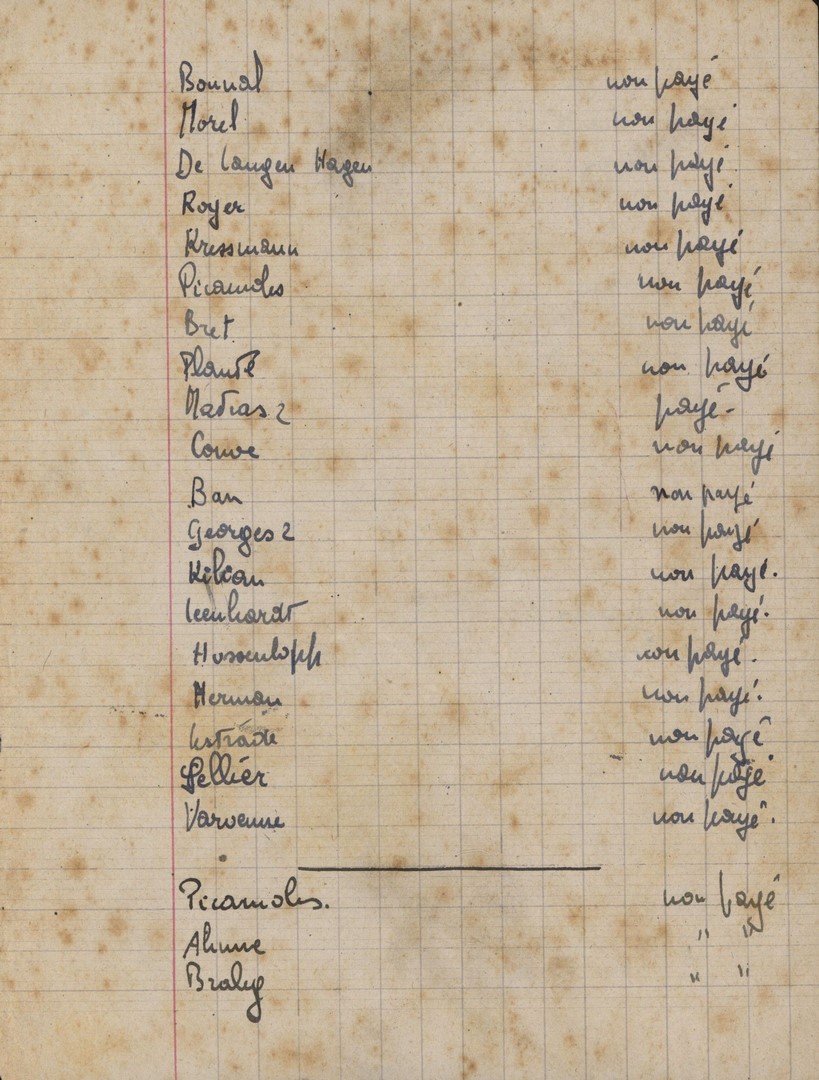 Bonnal non payé
Morel non payé
De Langen Hagen non payé
Royer non payé
Kressmann non payé
Picamoles non payé
Bret non payé
Planté non payé
Matras 2 payé -
Couve non payé
Ban non payé
Georges 2 non payé
Kilian non payé.
Leenhardt non payé.
Hossenlopp non payé.
Herman non payé.
Lestrade non payé
Sellier non payé
Varvenne non payé.
Picamoles. non payé
Ahnne " "
Braly " "